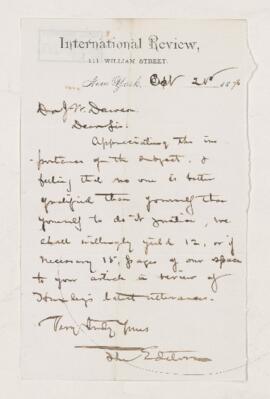 International Review,
111 WILLIAM STREET.
New York, Oct 2 1876
Dr J. W. Dawson
Dear Sir:
Appreciating the im-
portance of the subject, &
feeling that no one is better
qualified than yourself than
yourself to do it justice, we
shall willingly yield 12, or if
necessary 15, pages of our space
to your article in review of
Huxley's latest utterances.
Very truly yours
The Editor